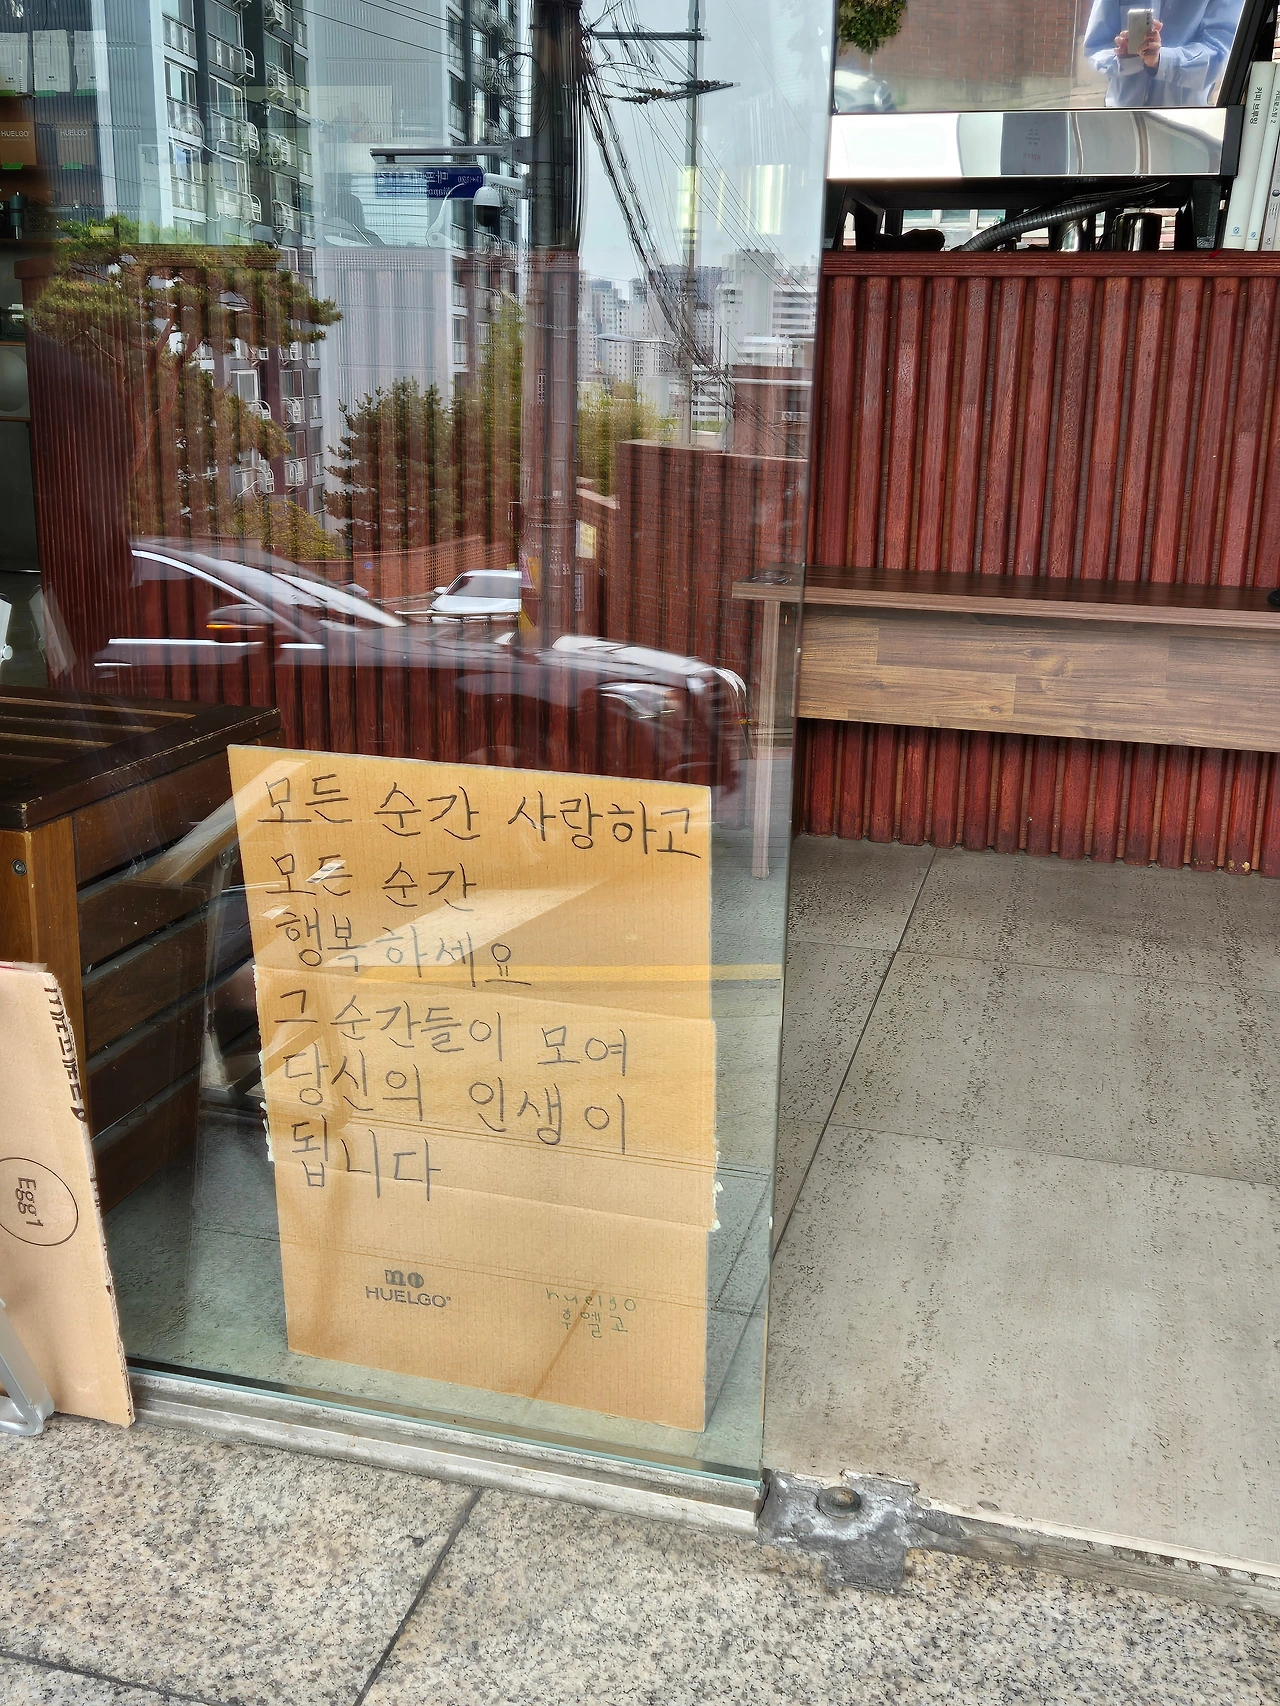 HUELGO
HUELGO
커피 브루잉
모든 순간 사랑하고
모든 순간
행복하세요
그 순간들이 모여
당신의 인생이
됩니다
Egg1
HUELGO
huelgo
후엘고